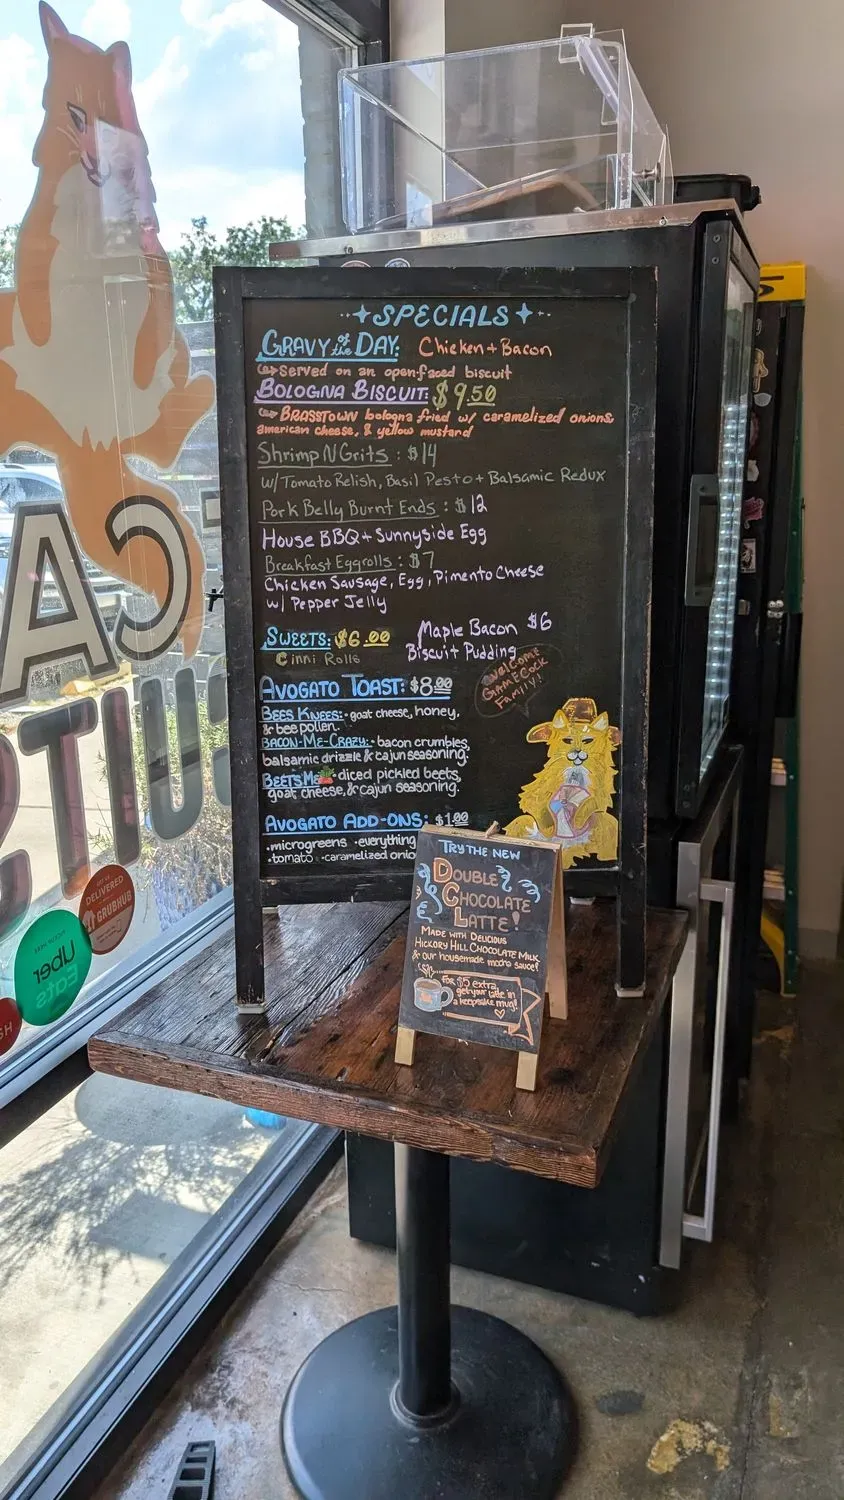 SPECIALS
GRAVY of the DAY: Chicken + Bacon
served on an open-faced biscuit
BOLOGNA BISCUIT: $9.50
BRASSTOWN bologna fried w/ caramelized onions,
american cheese, & yellow mustard
Shrimp N Grits : $14
w/ Tomato Relish, Basil Pesto + Balsamic Redux
Pork Belly Burnt Ends : $12
House BBQ + Sunnyside Egg
Breakfast Eggrolls : $7
Chicken Sausage, Egg, Pimento Cheese
w/ Pepper Jelly
SWEETS: $6.00
Cinni Rolls
Maple Bacon $6
Biscuit Pudding
Welcome
GAMECOCK
Family!
AVOGATO TOAST: $8.00
BEES KNEES: • goat cheese, honey,
& bee pollen.
BACON-ME-CRAZY: • bacon crumbles,
balsamic drizzle & cajun seasoning.
BEETS ME • diced pickled beets,
goat cheese, & cajun seasoning.
AVOGATO ADD-ONS: $1.00
• microgreens • everything
• tomato • caramelized onio
TRY THE NEW
DOUBLE
CHOCOLATE
LATTE!
MADE WITH DELICIOUS
HICKORY HILL CHOCOLATE MILK
& our housemade mocha sauce!
FOR $5 extra,
get your latte in
a keepsake mug!
CA
UITS
DELIVERED
GRUBHUB
Uber
Eats